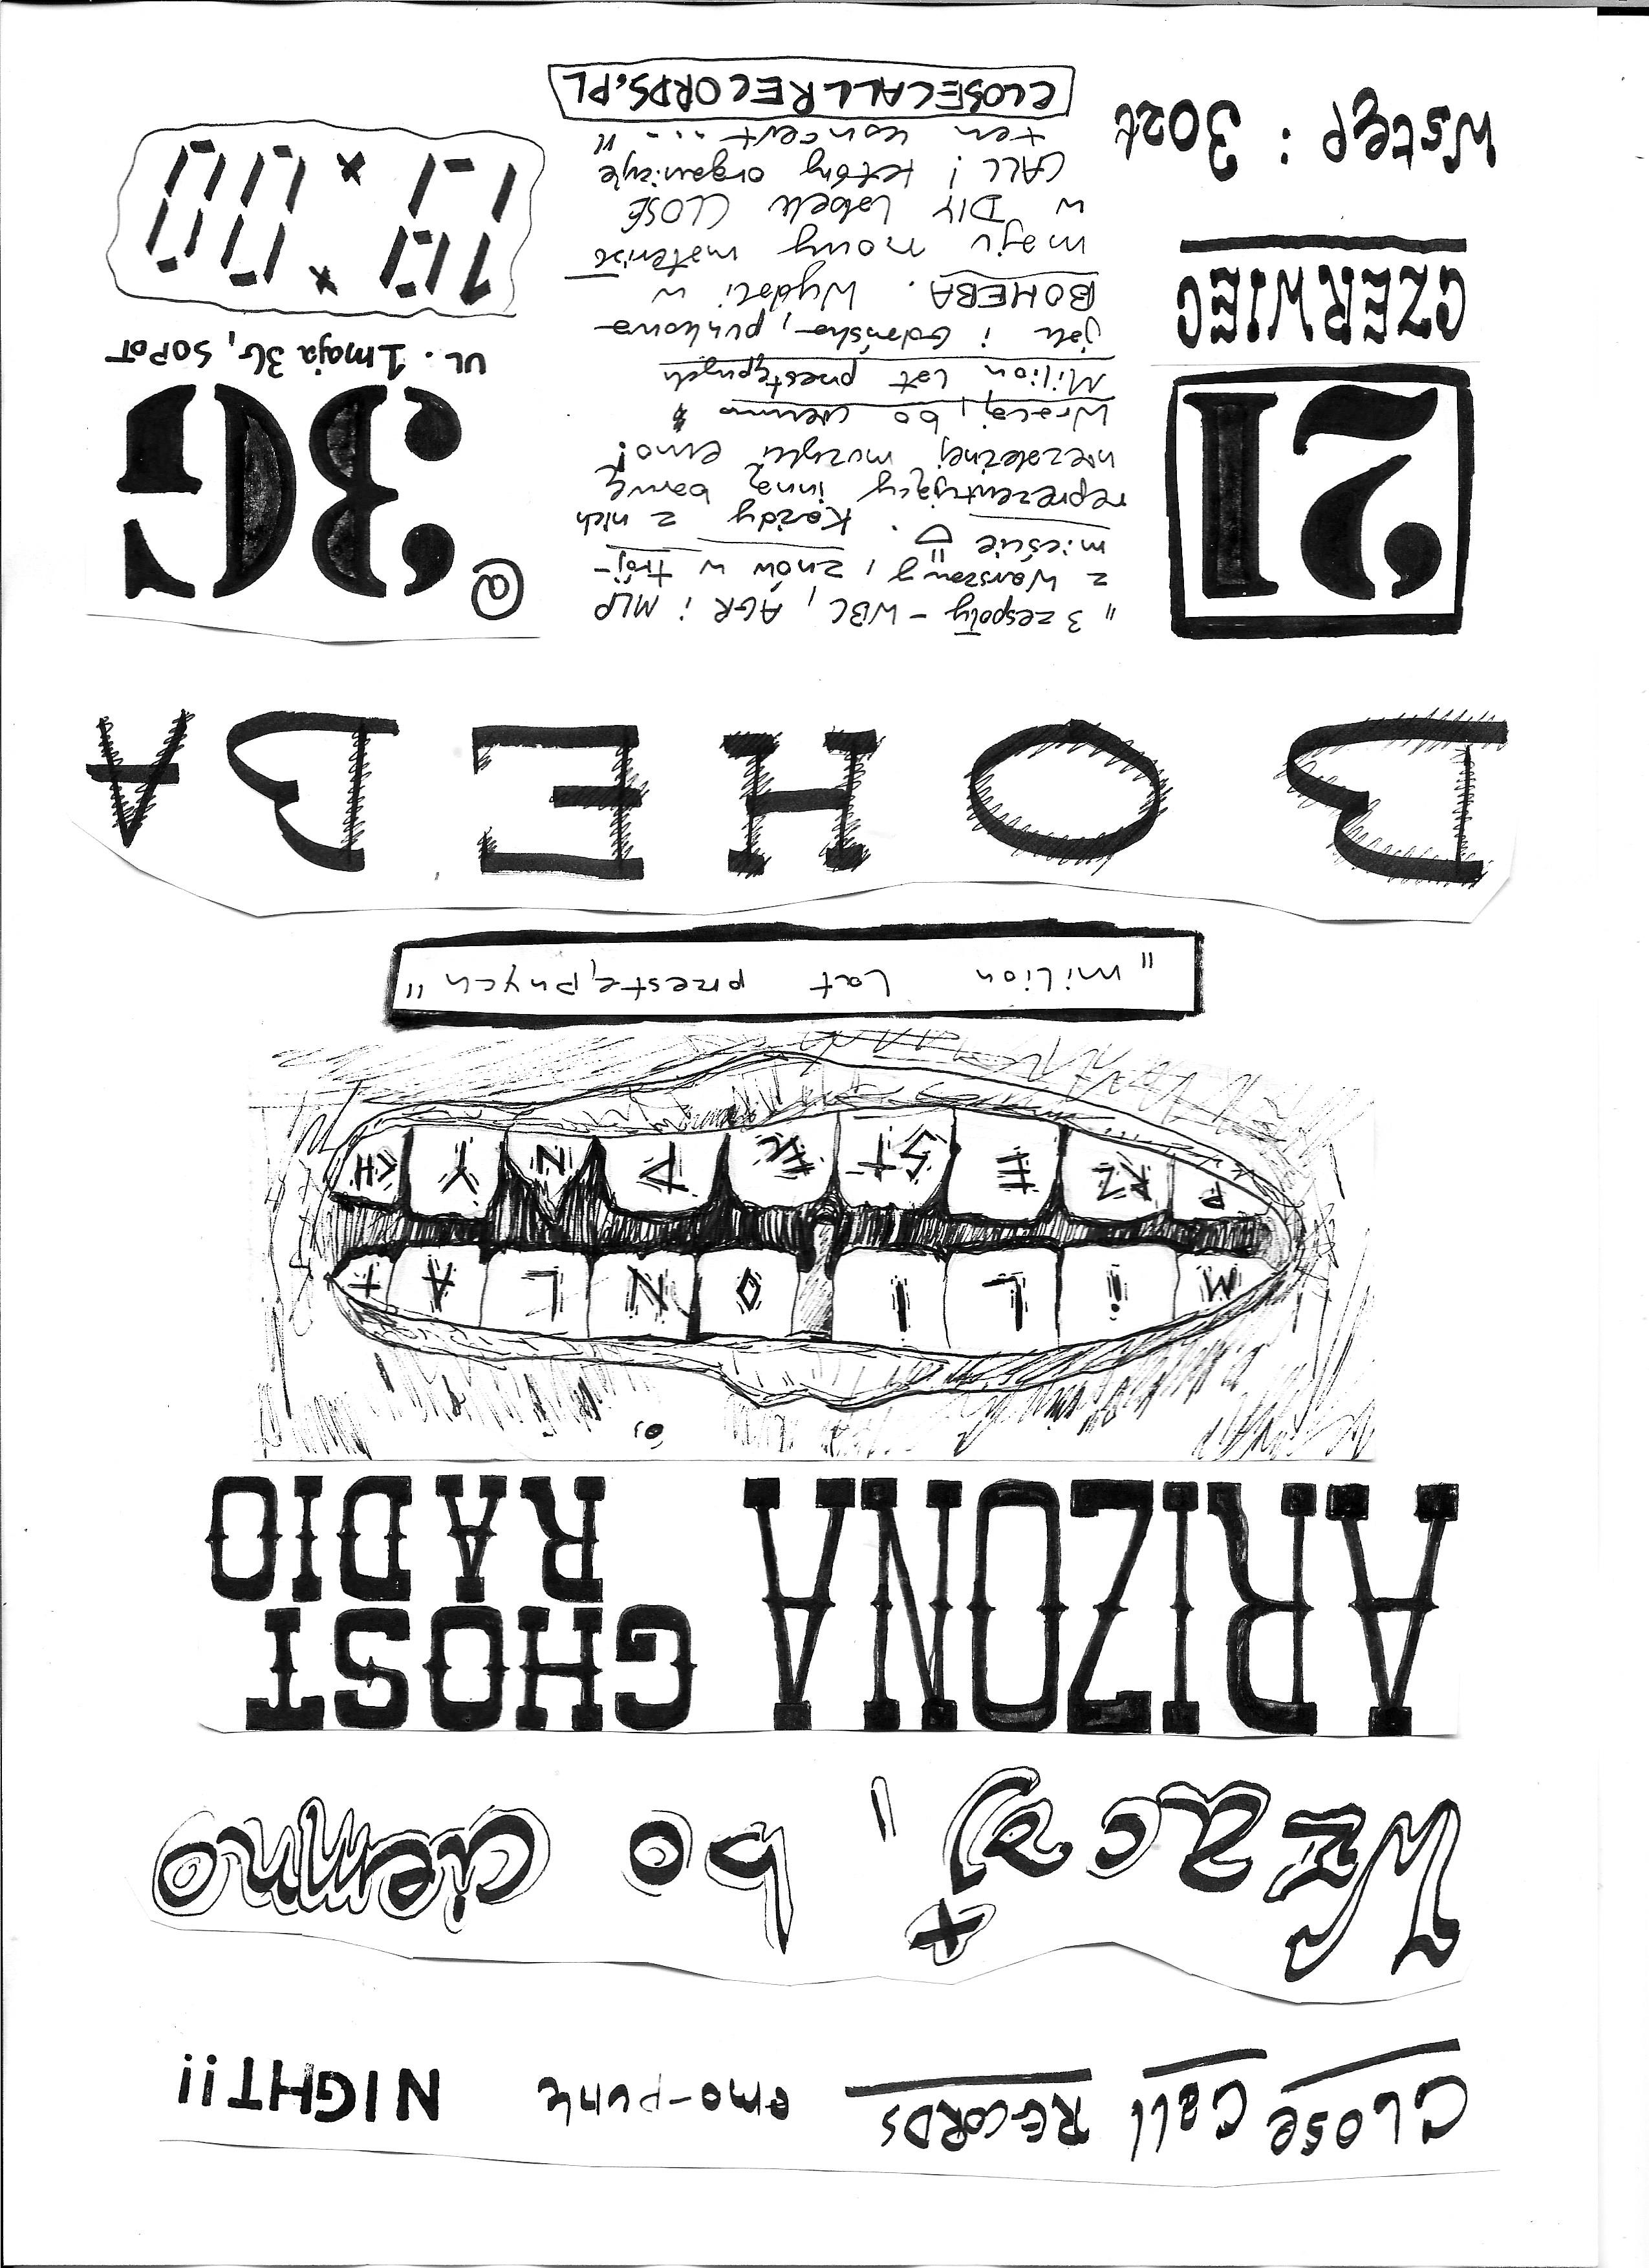 CLOSE CALL RECORDS emo-punk NIGHT!!
Wracaj, bo ciemno
ARIZONA GHOST
RADIO
MiLI ONLAT
PRZESTĘPNYCH
„milion lat przestępnych"
BOHEBA
21
CZERWIEC
Wstęp: 30zł
„3 zespoły - WBC, AGR i MLP
z Warszawy, znów w trój-
mieście
. Każdy z nich
reprezentujący inną barwę
niezależnej muzyki emo!
Wracaj, bo ciemno
Milion lat przestępnych
jak i Gdańska, punkowa
BOHEBA. Wydali w
maju nowy materiał
w DIY labelu CLOSE
CALL! który organizuje
ten koncert..."
CLOSECALLRECORDS.PL
@ 3G
UL. 1 maja 3G, SOPOT